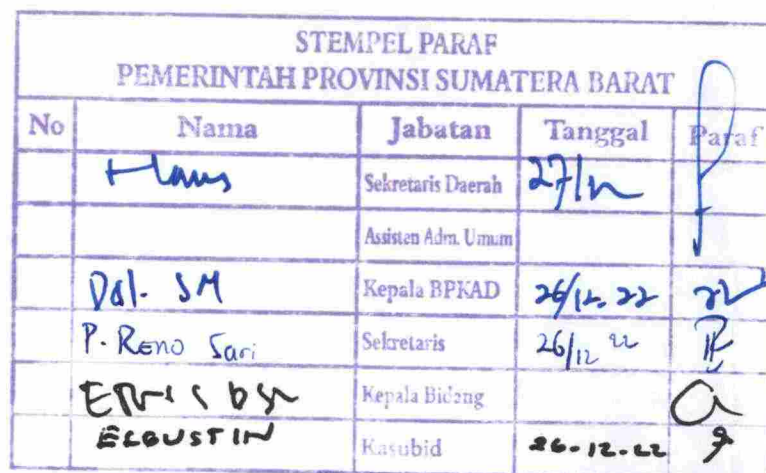 STEMPEL PARAF
PEMERINTAH PROVINSI SUMATERA BARAT
No Nama Jabatan Tanggal Paraf
Hans Sekretaris Daerah 27/12
Assisten Adm. Umum
Dal. SM Kepala BPKAD 26/12.22
P. RENO Sari Sekretaris 26/12 22
Kepala Bidang
ELGUSTIN Kasubid 26-12-22